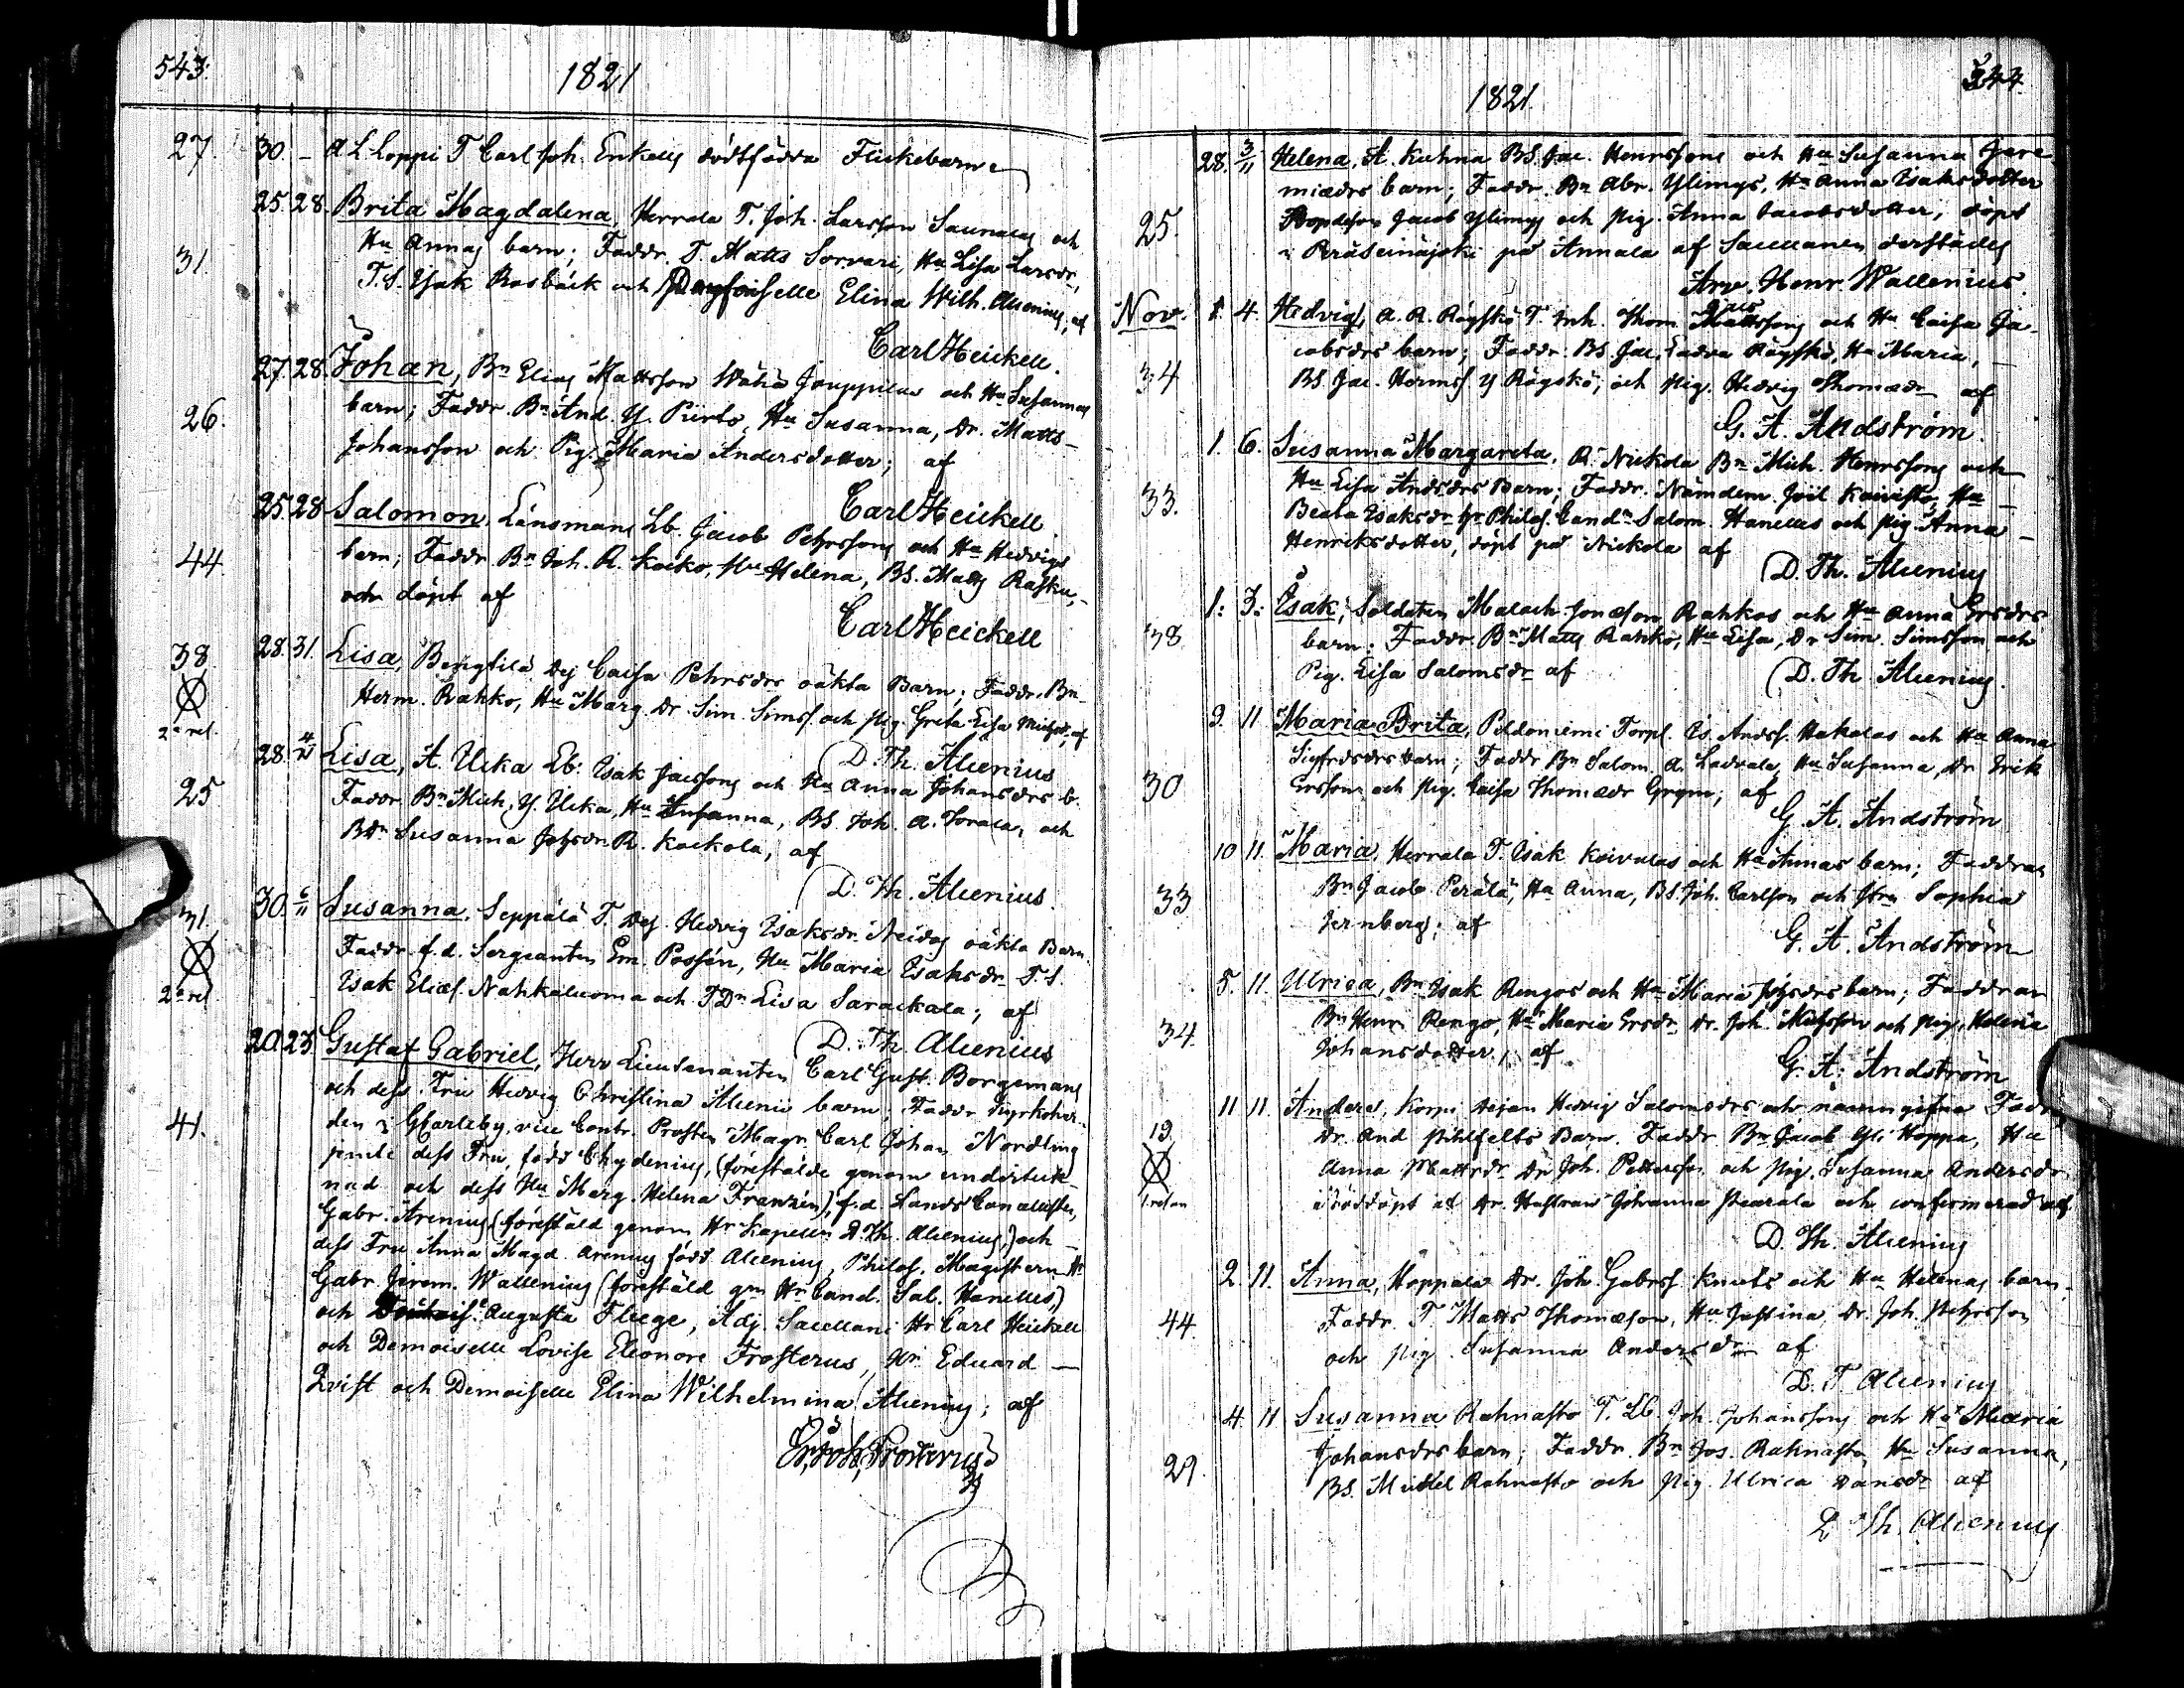 543.
1821
27. 30. – A L Loppi T Carl Joh. Enkelis dödfödda Flickebarn
25. 28. Brita Magdalena, Herrala T. Joh. Larsson Saunalas och
Hu Annas barn; Faddr. T. Matts Sorvari, Hu Lisa Larsdr,
31.
T.S. Isak Rosbäck och Demoiselle Elina Wilh. Alcenius, af
Carl Heickell.
27. 28. Johan, Bn Elias Mattsson Wähä Jouppilas och Hu Susannas
26.
barn; Faddr. Bn And. Y. Piirto, Hu Susanna, Dr. Matts
Johansson och Pig. Maria Andersdotter; af
Carl Heickell
25. 28. Salomon, Länsmans Lb. Jacob Pehrssons och Hu Hedvigs
44.
barn; Faddr. Bn Joh. R. Kocko, Hu Helena, BS. Matts Rasku,
och döpt af
Carl Heickell
38. 28. 31. Lisa, Bengtilä Dej Caisa Pehrsdrs oäkta Barn; Faddr. Bn
Herm. Rahko, Hu Marg. Dr. Sim. Simss. och Pig. Greta Lisa Michsdr, af
2a rel.
D. Th. Alcenius
28. 4/11 Lisa, A. Ucka Lb. Isak Jacssons och Hu Anna Johansdrs b.
25
Faddr. Bn Mich. Y. Ucka, Hu Susanna, BS. Joh. A. Sorala, och
BDn Susanna Johsdr R. Kockola, af
D. Th. Alcenius.
30. 6/11 Susanna, Seppälä T. Dej. Hedvig Isaksdr. Neidas oäkta Barn.
31.
Faddr. f.d. Sergeanten Em. Possén, Hu Maria Isaksdr T.S.
2a rel
Isak Eliæs. Nahkaluoma och TDn Lisa Sarackala; af
D. Th. Alcenius
20. 23. Gustaf Gabriel, Herr Lieutenanten Carl Gust. Borgemans
och dess Fru Hedvig Christina Alcenii barn; Faddr Kyrkoher-
41.
den i Gfarleby, vice Contr. Prosten Magr. Carl Johan Nordling
jemte dess Fru, född Chydenius, (föreställde genom
och dess Hu Marg. Helena Franzén), f.d. Lands Cancellisten,
Gabr. Arenius (föreställd genom Hr Kapelln D. Th. Alcenius,) och
dess Fru Anna Magd. Arenius född Alcenius, Philos. Magistern Hr
Gabr. Jerem. Wallenius (föreställd gm Hr Cand. Sal. Hanelles,)
och Augusta Fliege, Adj. Sacellani Hr Carl Heickell
och Demoiselle Lovise Eleonore Frosterus, Hr. Eduard
Qvist och Demoiselle Elina Wilhelmina Alcenius; af
Er. Joh. Frosterus
544
1821
28. 3/11 Helena, A. Kuhna BS. Jac. Henrssons och Hu Susanna Jere
miædrs barn; Faddr. Bn Abr. Ylimys, Hu Anna Isaksdotter
25.
Jacob Ylimys och Pig. Anna Jacobsdotter, döpt
i Peräseinäjoki på Annala af Sacellanen derstädes
Arv. Henr. Wallenius.
Nov. 1. 4. Hedvig, A. R. Röyskö T. Inh. Thom. Mattssons och Hu Caisa Ja-
cobsdrs barn; Faddr. BS. Jac. Ladva Röyskö, Hu Maria,
34
BS. Jac. Hermss. Y Röyskö, och Pig. Hedvig Thomædr af
G. A. Andström.
1. 6. Susanna Margareta, R. Nickola Bn Mich. Henrssons och
Hu Lisa Andsdrs Barn; Faddr. Nämdem. Joël Koivisto, Hu
33.
Beata Isaksdr Hr Philos. Candn Salom. Hanelles och Pig. Anna
Henriksdotter, döpt på Nickola af
D. Th. Alcenius
1. 3. Esak, Soldaten Malach. Jonæson Rahkos och Hu Anna Ersdrs
38
barn; Faddr. Bn Matts Rahko, Hu Lisa, Dr Sim. Simsson och
Pig. Lisa Salomsdr af
D. Th. Alcenius.
9. 11 Maria Brita, Peldoniemi Torpl. Es. Andss. Hakalas och Hu Anna
Sigfredsdrs barn; Faddr Bn Salom. A. Ladvala, Hu Susanna, Dr Erik
30
Ersson och Pig. Caisa Thomædr Gryn; af
G. A. Andström
10 11. Maria, Herrala T. Isak Koivulas och Hu Annas barn; Faddrar
33
Bn Jacob Perälä, Hu Anna, BS. Joh. Carlson och Jfrn Sophia
Jernberg; af
G. A. Andström
5. 11. Ulrica, Bn Isak Rengos och Hu Maria Johsdrs barn; Faddrar
34.
Bn Henr. Rengo, Hu Maria Ersdr, Dr. Joh. Michsson och Pig. Helena
Johansdotter, af
G. A. Andström
11 11. Anders, Korpi Pejan Hedvig Salomsdrs och namngifna Fadr
19
Dr. And Pihlfelts Barn. Faddr. Bn Jacob Yli Hoppa, Hu
Anna Mattsdr Dr Joh. Pettersson och Pig. Susanna Andersdr
nöddöpt af Dr. Hustrun Johanna Pearala och confirmerad af
D. Th. Alcenius
2 11. Anna, Hoppala Dr. Joh. Gabrss. Knuts och Hu Helenas barn,
44.
Faddr. T. Matts Thomæson, Hu Justina, Dr. Joh. Pehrsson
och Pig. Susanna Andersdr af
D. T. Alcenius
4. 11 Susanna Rahnasto T. Lb. Joh. Johanssons och Hu Maria
Johansdrs barn; Faddr. Bn Jos. Rahnasto, Hu Susanna,
29.
BS. Mickel Rahnasto och Pig. Ulrica Dansdr af
D Th. Alcenius